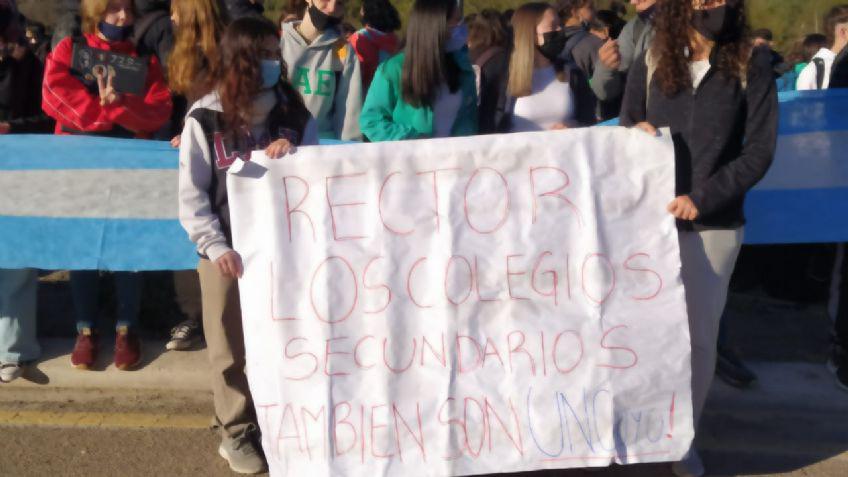 RECTOR
LOS COLEGIOS
SECUNDARIOS
TAMBIEN SON UNCUYO!